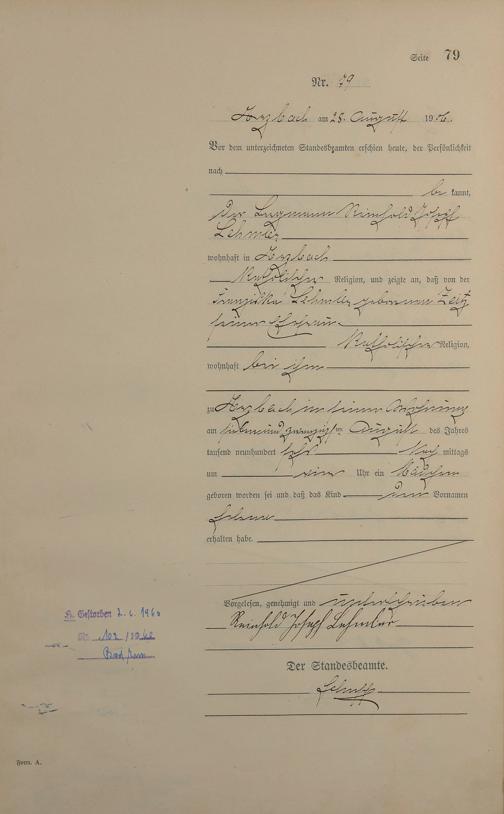 Seite 79
Nr. 79
am 28. August 1906.
Vor dem unterzeichneten Standesbeamten erschien heute, der Persönlichkeit
nach
be kannt,
der Bergmann Reinhold Joseph
Lehmler
wohnhaft in
Katholischer Religion, und zeigte an, daß von der
Franziska Lehmler geborenen
seiner Ehefrau
Katholischer Religion,
wohnhaft bei ihm
zu in seiner Wohnung
am siebenundzwanzigsten August des Jahres
tausend neunhundert sechs Nach mittags
um Uhr ein Mädchen
geboren worden sei und daß das Kind den Vornamen
erhalten habe.
Vorgelesen, genehmigt und unterschrieben
Reinhold Joseph Lehmler
Der Standesbeamte.
Gestorben 1960
Form. A.